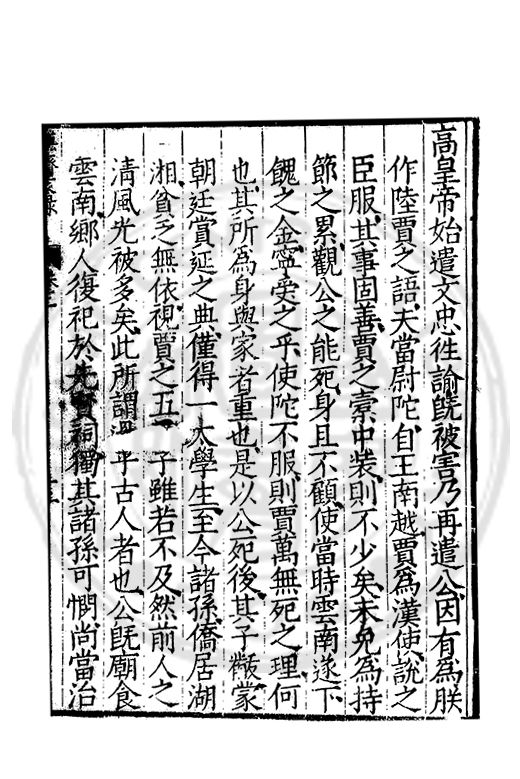 高皇帝始遣文忠徃諭旣被害乃再遣公因有爲朕
作陸賈之語夫當尉陀自王南越賈爲漢使說之
臣服其事固善賈之槖中裝則不少矣未免爲持
節之累觀公之能死身且不顧使當時雲南遂下
餽之金寧受之乎使陀不服則賈萬無死之理何
也其所爲身與家者重也是以公死後其子黻蒙
朝廷賞延之典僅得一太學生至今諸孫僑居湖
湘貧乏無依視賈之五子雖若不及然前人之
淸風光被多矣此所謂 乎古人者也公旣廟食
雲南鄉人復祀於先賢祠獨其諸孫可憫尚當治